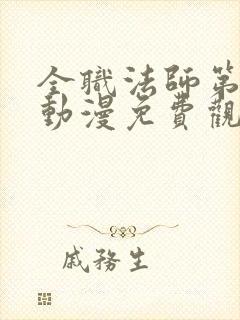 全職法師第
動漫免費觀
戚務生